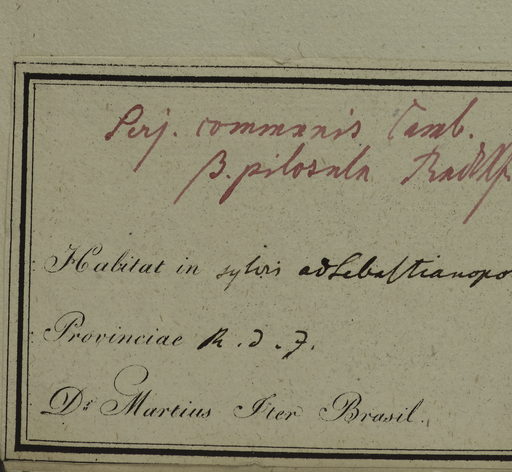 Pers. communis Camb.
β. pilosula Radlk
Habitat in sylvis ad Sebastianopo
Provinciae R. d. J.
Dr. Martius Iter Brasil.